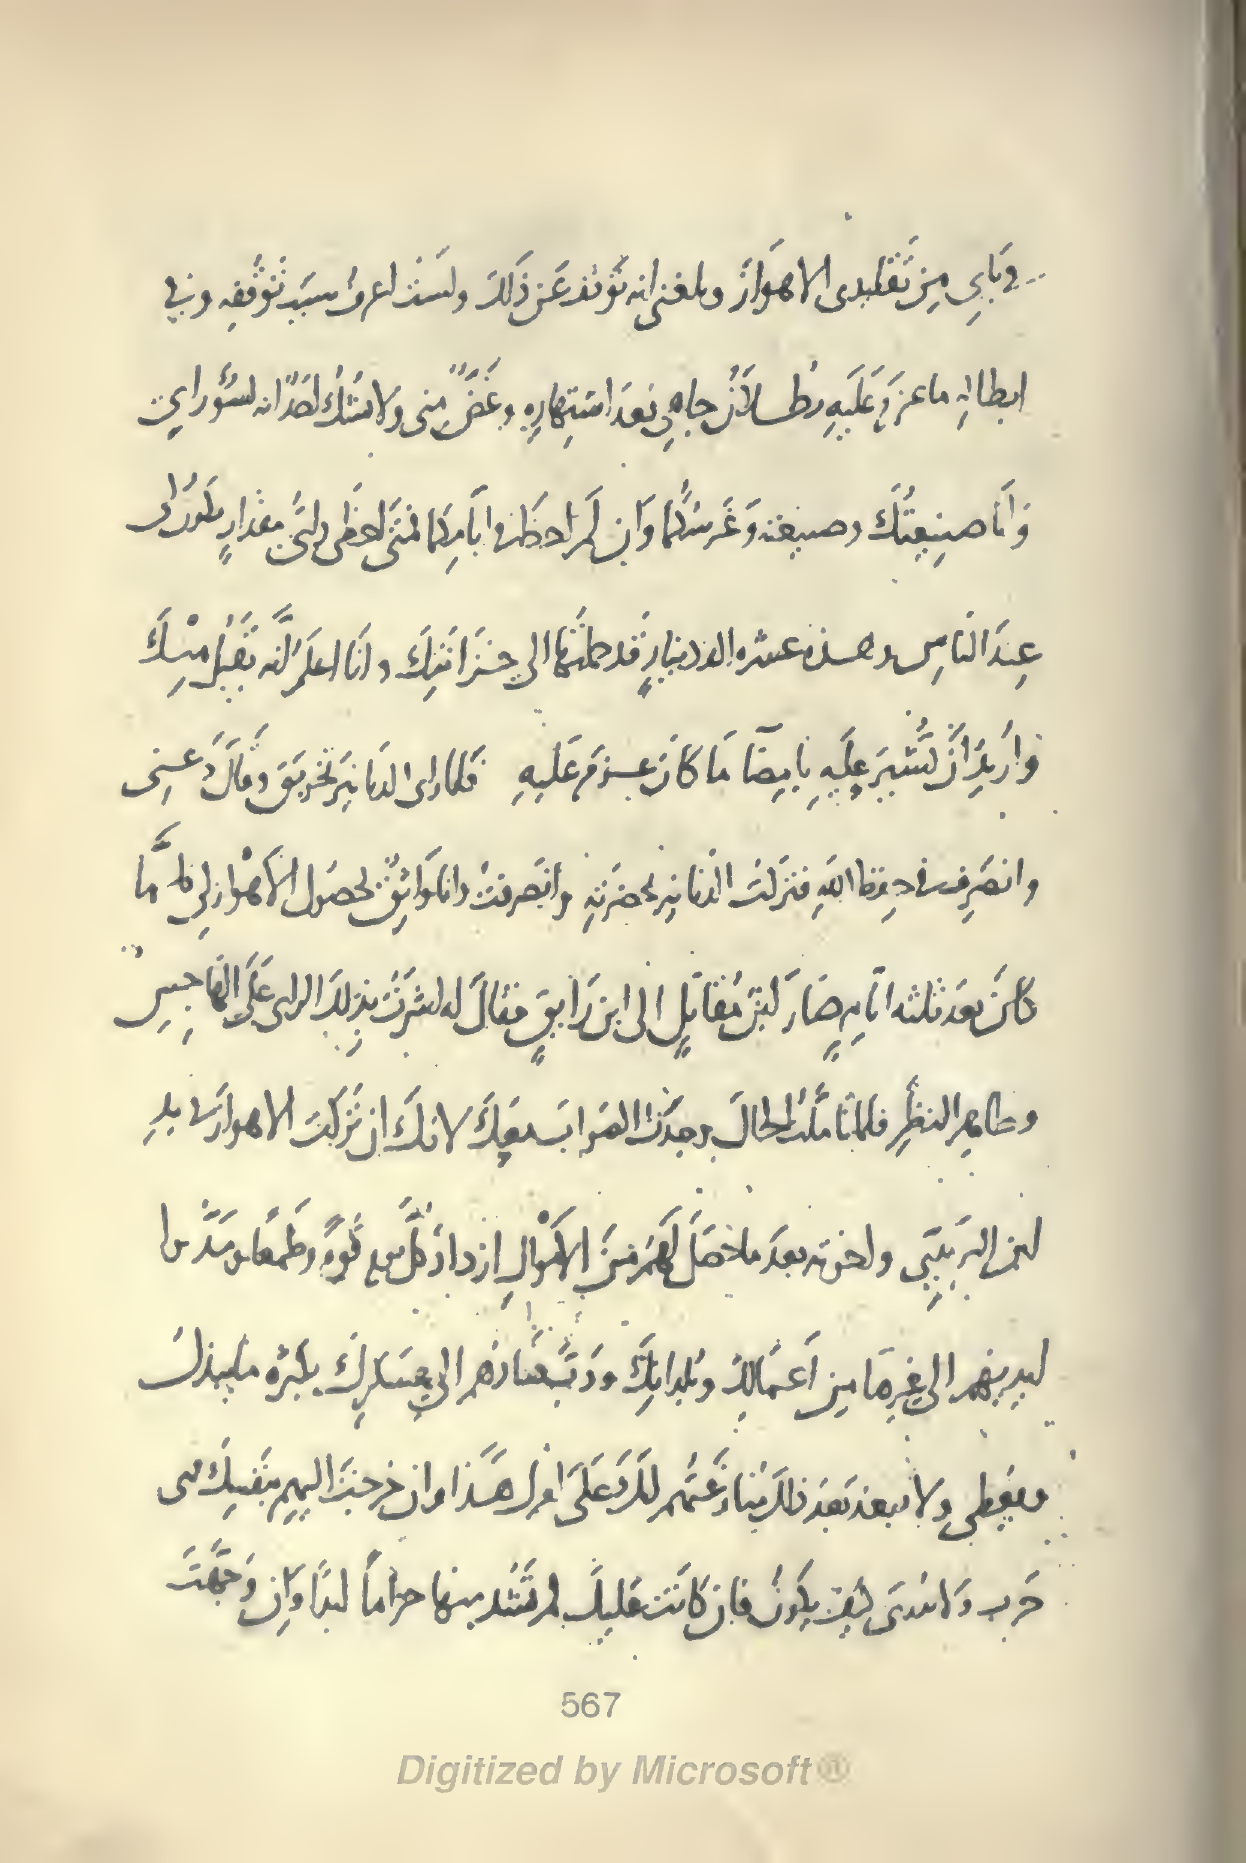 في بابي من تقليدي الاهواز وبلغني انه توقف عن ذلك ولست اعرف سبب توقفه وفي
ابطاله ما عزم عليه بطلان جاهي بعد اشتهاره وغض مني ولا شك لضد انه لسوء رايي
وانا صنيعتك وصنيعته وغرسكما وان لم احظ في ايامكما فمتى احظى وايّ مقدار يكون لي
عند الناس وهذه عشره الاف دينار قد حملتها الى خزانتك وانا اعلم انه يقبل منك
واريد ان تشير عليه بامضا ما كان عزم عليه فلما راى الدنانير تحريق وقال دعني
وانصرف في حفظ الله فتركت الدنانير بحضرته وانصرفت وانا واثق بحصول الاهواز لي فلما
كان بعد ثلثه ايام صار ابن مقاتل الى ابن رايق فقال له اشرت بذلك الراى على الهاجس
وظاهر النظر فلما تاملت الحال وجدت الصواب معك لانك ان تركت الاهواز في يد
ابن البريدي واخوته بعد ما حصل لهم من الاموال ازداد كل يوم قوة وطمعا ومد
يديهم الى غيرها من اعمالك وبلدانك ودبت الى عسكرك بكثره ما يبذل
ويعطي ولا يبعد بعد ذلك منازعتهم لك على امرك هذا وان خرجت اليهم بنفسك فهي
حرب ولا ندري كيف يكون فان كانت عليك لم تشد منها حزاما ابدا وان وجهت
567
Digitized by Microsoft®